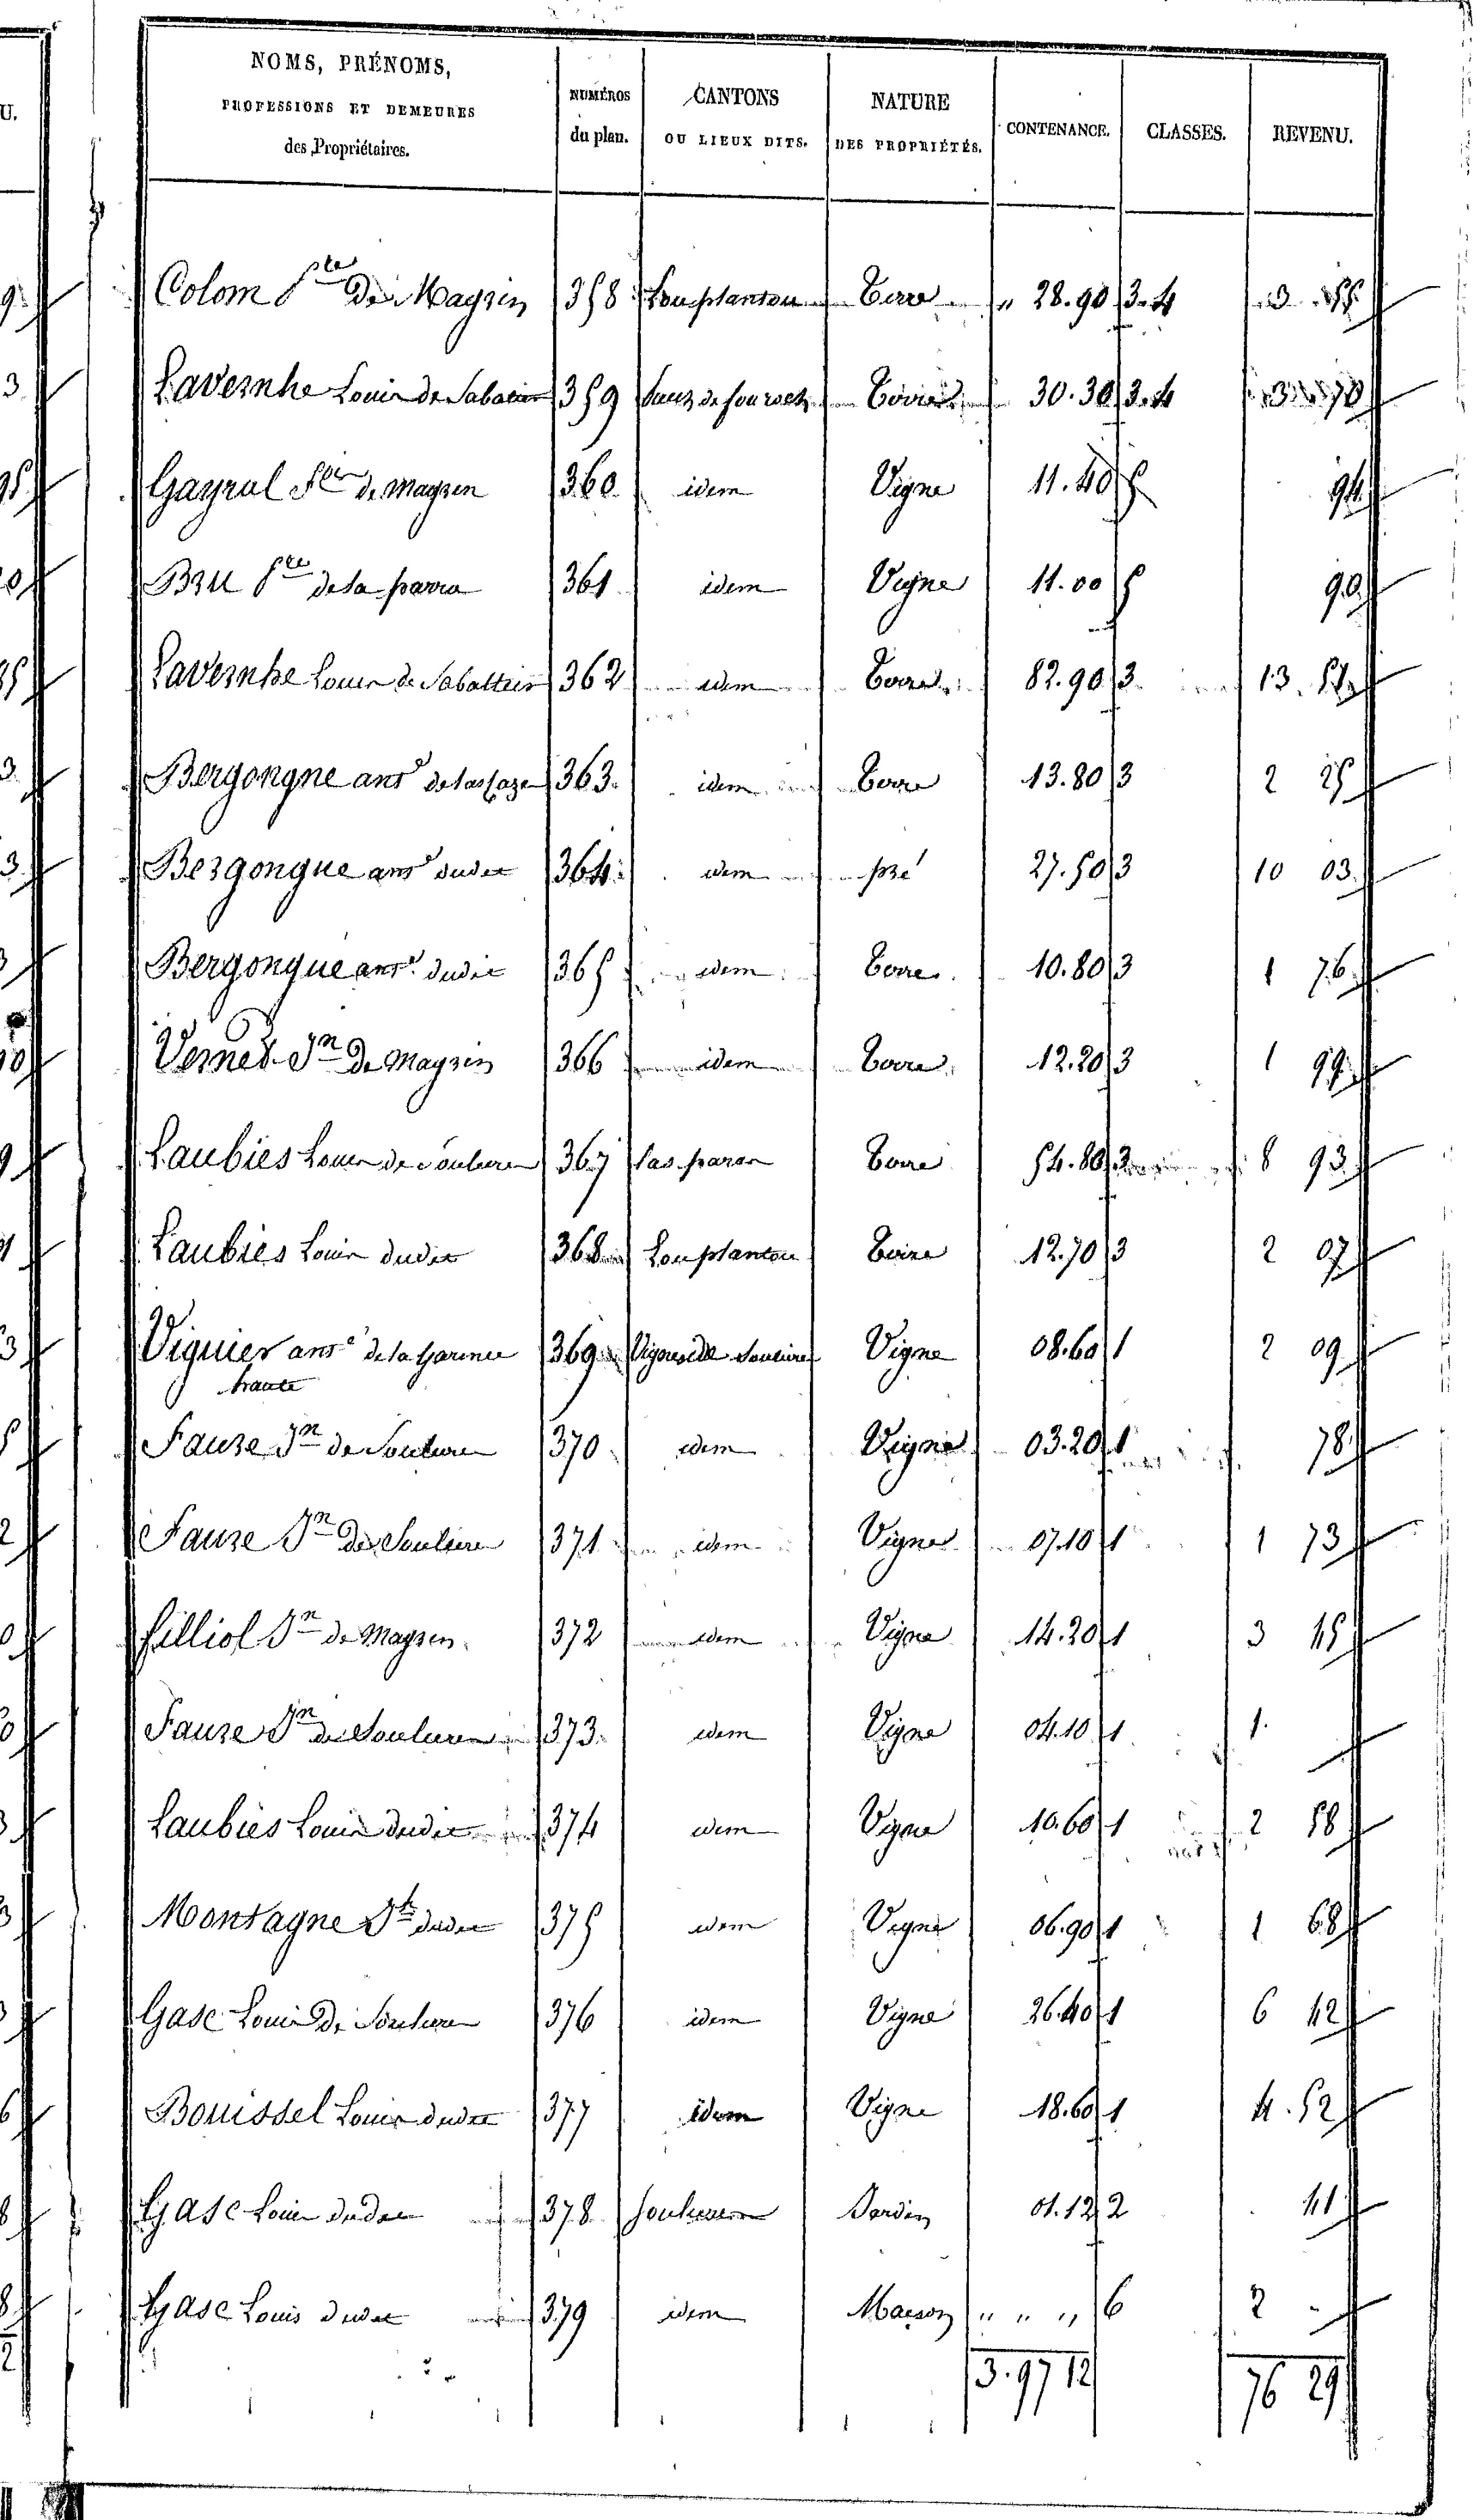 U.
NOMS, PRÉNOMS,
PROFESSIONS ET DEMEURES
des Propriétaires.
NUMÉROS
du plan.
CANTONS
OU LIEUX DITS.
NATURE
DES PROPRIÉTÉS.
CONTENANCE.
CLASSES.
REVENU.
Colom de Mayrin 358 Lou plantou Terre " 28.90 3.4 3
Lavernhe Louis de Sabatier 359 30.30 3.4 3 70
Gayral de Mayren 360 idem Vigne 11.40 5 94
Bru de la parra 361 idem Vigne 11.00 5 90
Lavernhe Louis de Sabattier 362 idem Terre 82.90 3 13
Bergongne ant de las Cazes 363 idem Terre 13.80 3 2 25
Bergongue ant dudit 364 idem pré 27.50 3 10 03
Bergongue ant dudit 365 idem Terre 10.80 3 1 76
Vernet Jn de Mayrin 366 idem Terre 12.20 3 1 99
Laubies Louis de Souliere 367 las paror Terre 54.80 3 8 93
Laubies Louis dudit 368 Lou plantou Terre 12.70 3 2 07
Viguier ant de la Garenne 369 Vignes de Vigne 08.60 1 2 09
haute
Fauze Jn de Souliere 370 idem Vigne 03.20 1 78
Fauze Jn de Souliere 371 idem Vigne 07.10 1 1 73
filliol Jn de Mayren 372 idem Vigne 14.20 1 3 45
Fauze Jn de Souliere 373 idem Vigne 04.10 1 1.
Laubies Louis dudit 374 idem Vigne 10.60 1 2 58
Montagne dudit 375 idem Vigne 06.90 1 1 68
Gasc Louis de Souliere 376 idem Vigne 26.40 1 6 42
Bouissel Louis dudit 377 idem Vigne 18.60 1 4.52
Gasc Louis dudit 378 Jardin 01.12 2 41
Gasc Louis dudit 379 idem Maison " " " 6 2 "
3.97 12 76 29